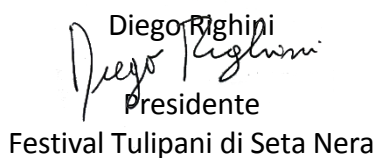 Diego Righini
Diego Righini
Presidente
Festival Tulipani di Seta Nera